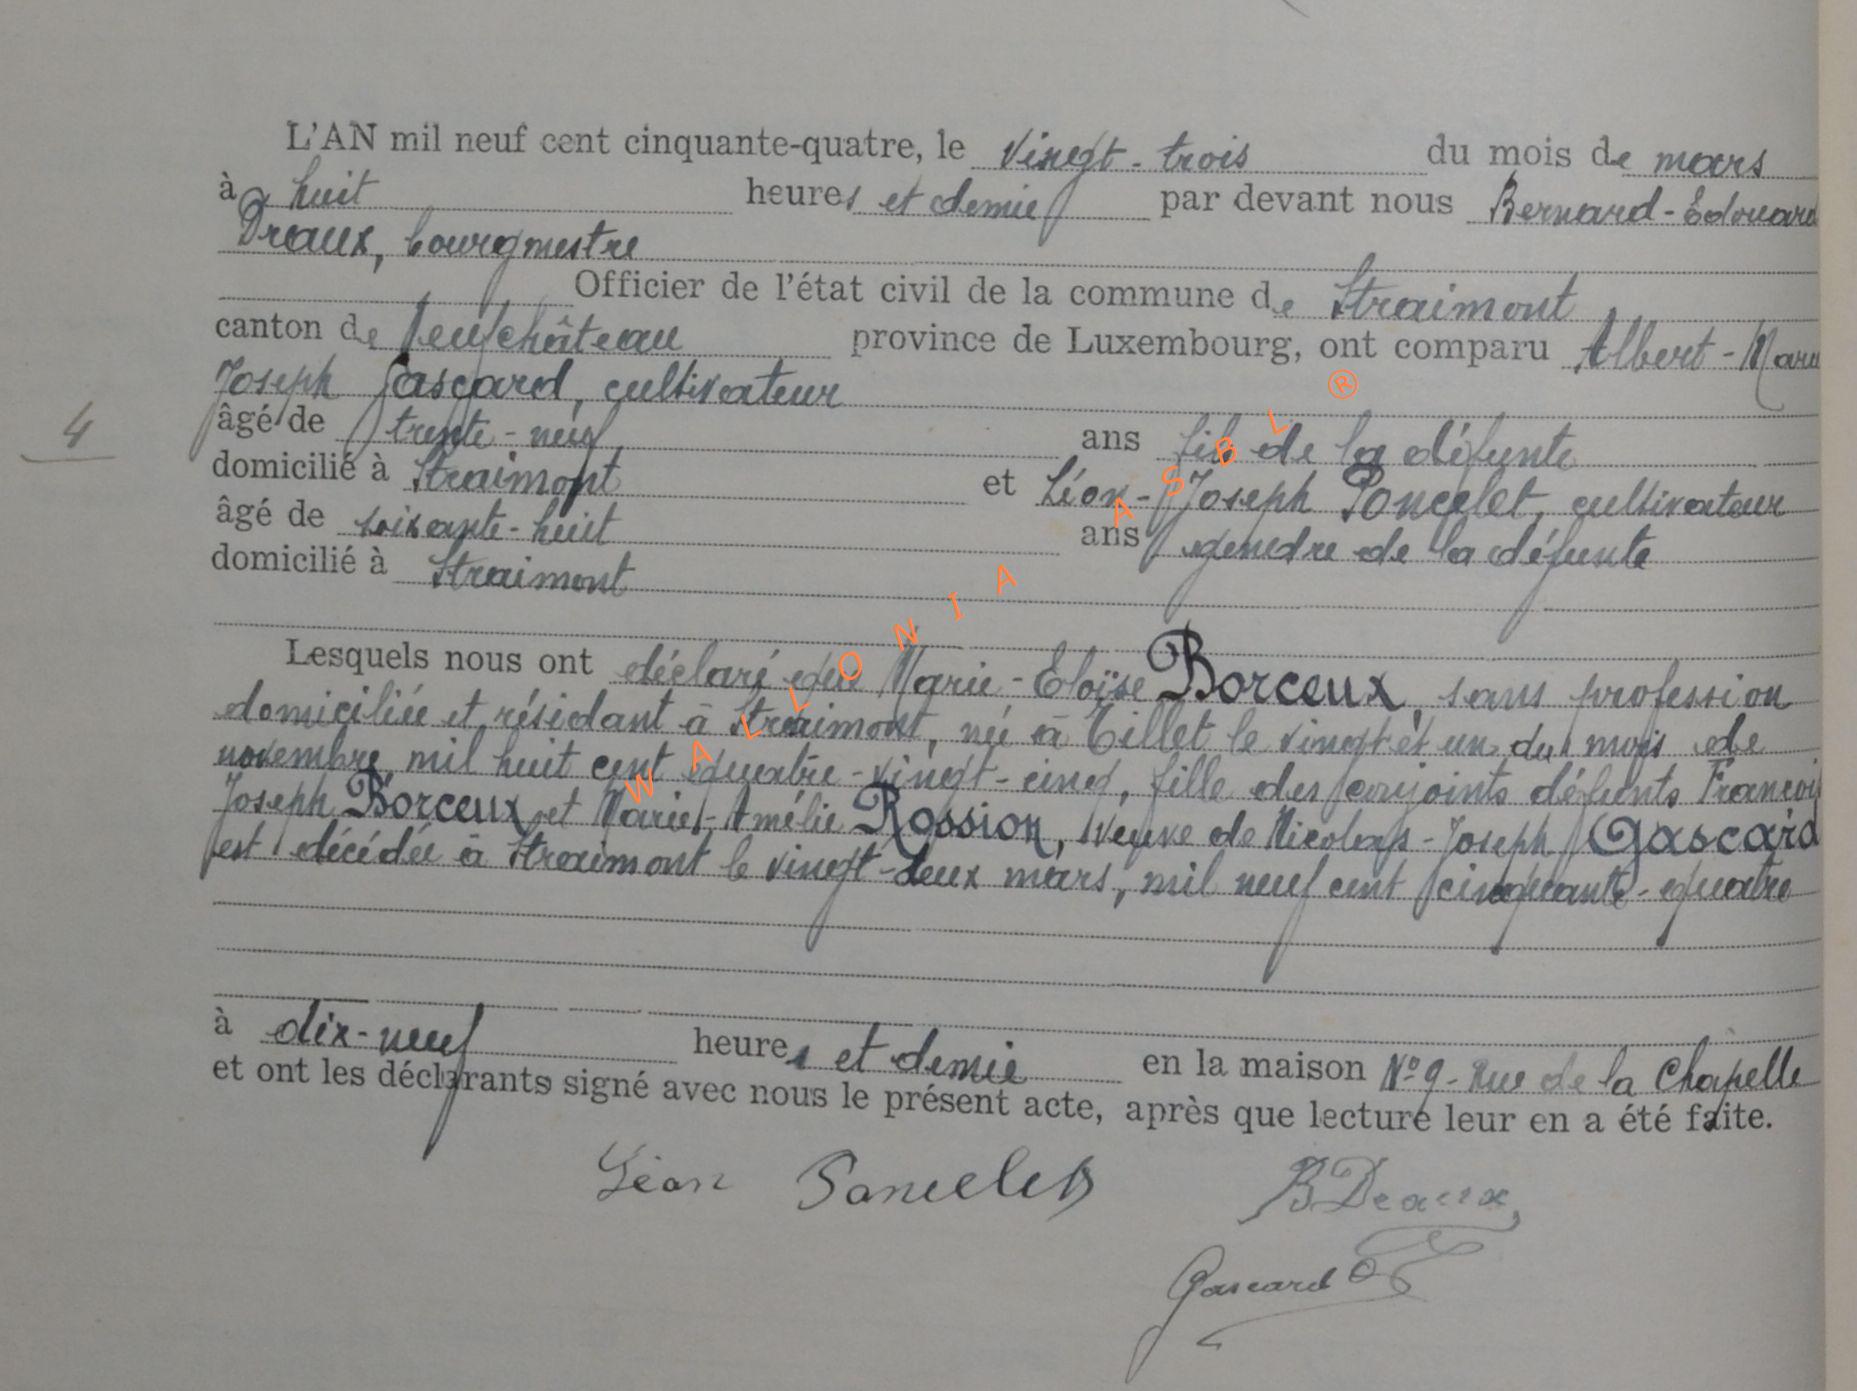 L'AN mil neuf cent cinquante-quatre, le vingt-trois du mois de mars
à huit heures et demie par devant nous Bernard-Edouard
Dreaux, bourgmestre
Officier de l'état civil de la commune de Straimont
canton de Neufchâteau province de Luxembourg, ont comparu Albert-Marie
Joseph Gascard, cultivateur
4
âgé de trente-neuf ans fils de la défunte
domicilié à Straimont et Léon-Joseph Poncelet, cultivateur
âgé de soixante-huit ans gendre de la défunte
domicilié à Straimont
Lesquels nous ont déclaré que Marie-Eloïse Borceux, sans profession
domiciliée et résidant à Straimont, née à Tillet le vingt et un du mois de
novembre mil huit cent quatre-vingt-cinq, fille des conjoints défunts François
Joseph Borceux et Marie-Amélie Rossion, veuve de Nicolas-Joseph Gascard
est décédée à Straimont le vingt-deux mars, mil neuf cent cinquante-quatre
à dix-neuf heures et demie en la maison N° 9 - Rue de la Chapelle
et ont les déclarants signé avec nous le présent acte, après que lecture leur en a été faite.
Léon Poncelet B Deaux
Gascard
WALLONIA ASBL ®